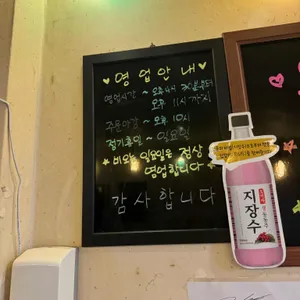 ♥ 영업안내 ♥
영업시간 ~ 오후 4시 30분부터
오후 11시까지
주문마감 ~ 오후 10시
정기휴일 ~ 일요일
* 비오는 일요일은 정상
영업합니다 *
감사합니다
지장수